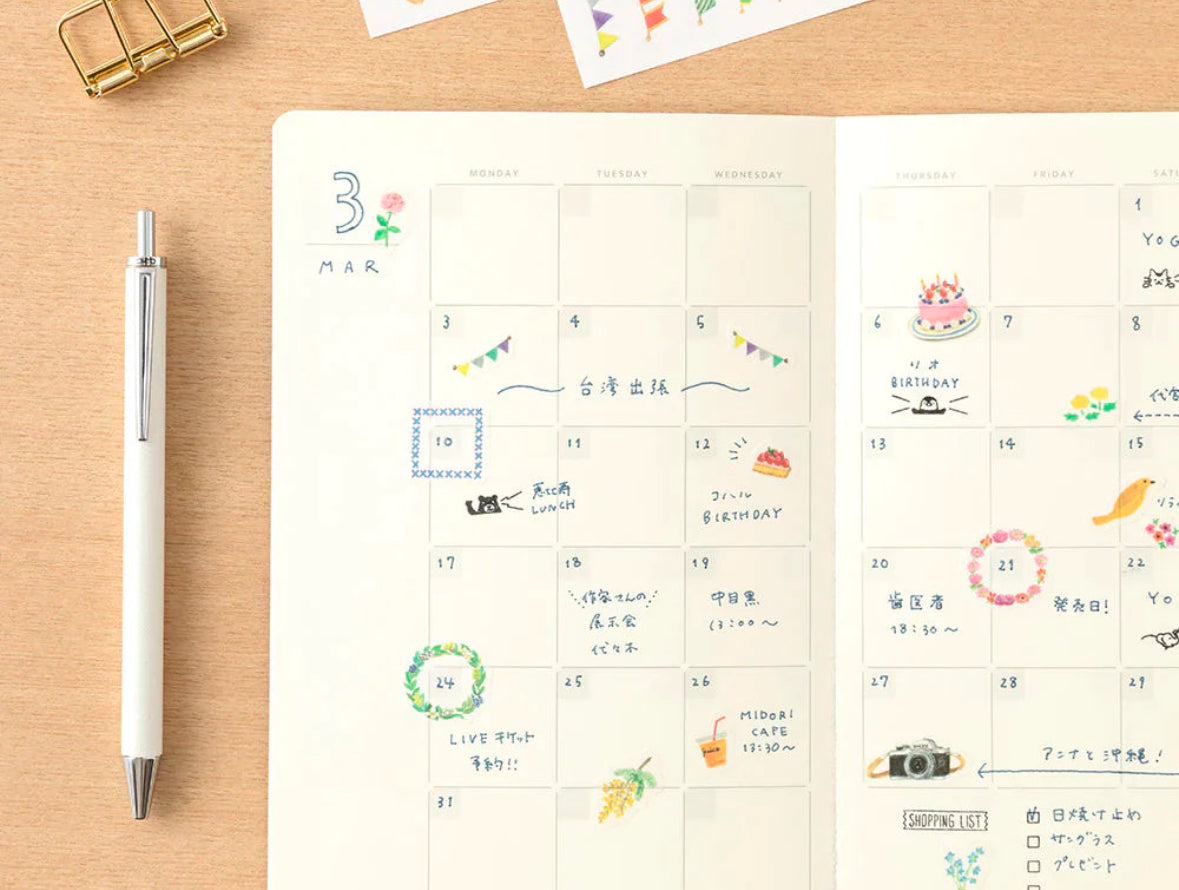 3
MAR
MONDAY TUESDAY WEDNESDAY THURSDAY FRIDAY
1
YOG
3 4 5 6 7 8
台湾出張
リオ
BIRTHDAY
10 11 12 13 14 15
恵比寿
LUNCH
コハル
BIRTHDAY
17 18 19 20 21 22
作家さんの
展示会
代々木
中目黒
13:00〜
歯医者
18:30〜
発売日!
YO
24 25 26 27 28 29
LIVE チケット
予約!!
MIDORI
CAFE
13:30〜
アンナと沖縄!
31
SHOPPING LIST
日焼け止め
サングラス
プレゼント